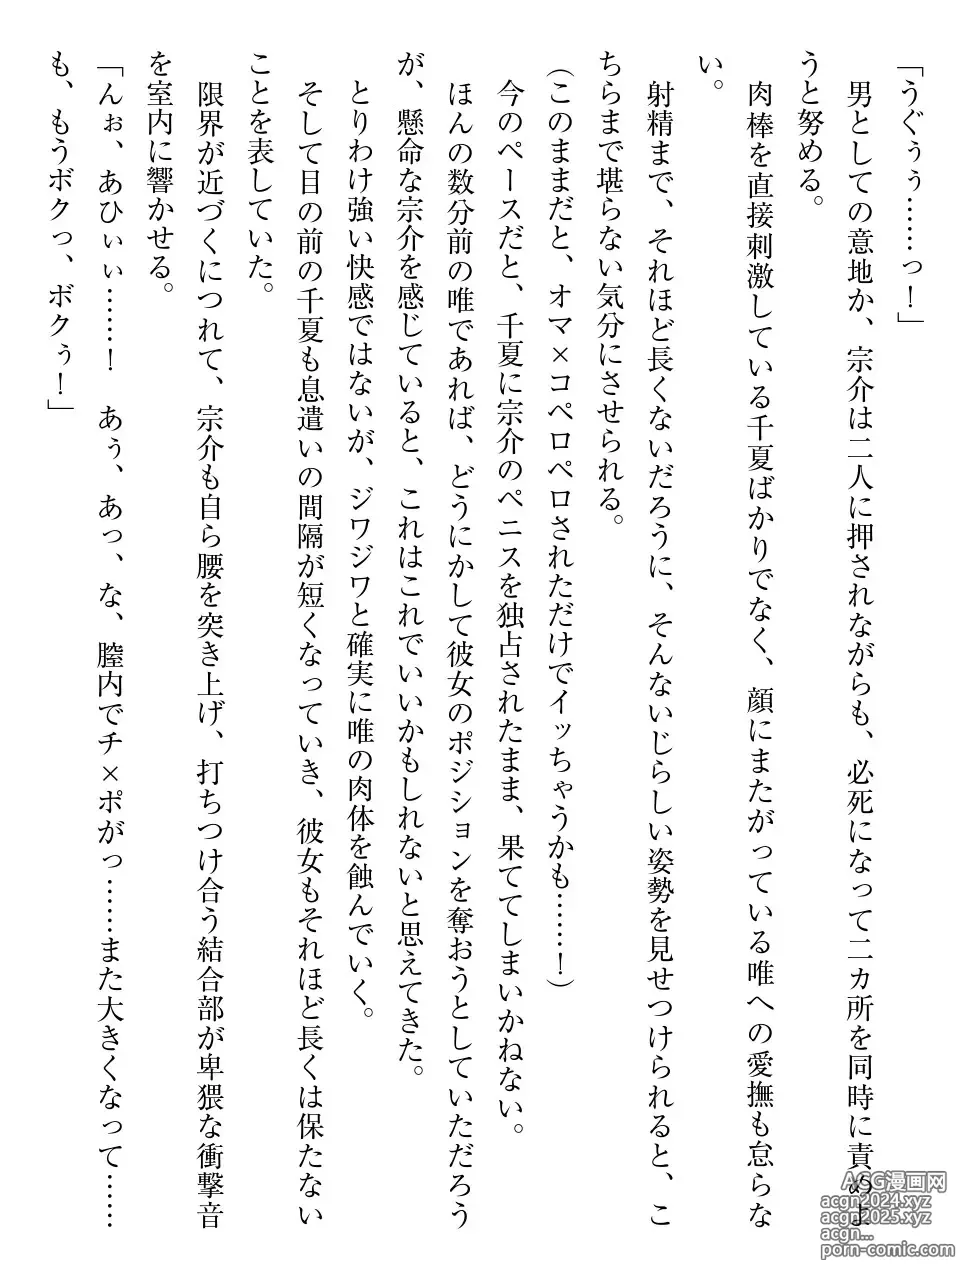 「うぐぅぅ……っ！」
男としての意地か、宗介は二人に押されながらも、必死になって二カ所を同時に責めよ
うと努める。
肉棒を直接刺激している千夏ばかりでなく、顔にまたがっている唯への愛撫も怠らな
い。
射精まで、それほど長くないだろうに、そんないじらしい姿勢を見せつけられると、こ
ちらまで堪らない気分にさせられる。
(このままだと、オマ×コペロペロされただけでイッちゃうかも……！)
今のペースだと、千夏に宗介のペニスを独占されたまま、果ててしまいかねない。
ほんの数分前の唯であれば、どうにかして彼女のポジションを奪おうとしていただろう
が、懸命な宗介を感じていると、これはこれでいいかもしれないと思えてきた。
とりわけ強い快感ではないが、ジワジワと確実に唯の肉体を蝕んでいく。
そして目の前の千夏も息遣いの間隔が短くなっていき、彼女もそれほど長くは保たない
ことを表していた。
限界が近づくにつれて、宗介も自ら腰を突き上げ、打ちつけ合う結合部が卑猥な衝撃音
を室内に響かせる。
「んぉ、あひぃぃ……！　あぅ、あっ、な、膣内でチ×ポがっ……また大きくなって……
も、もうボクっ、ボクぅ！」
ACG漫画网
acgn2024.xyz
acgn2025.xyz
acgn...
porn-comic.com